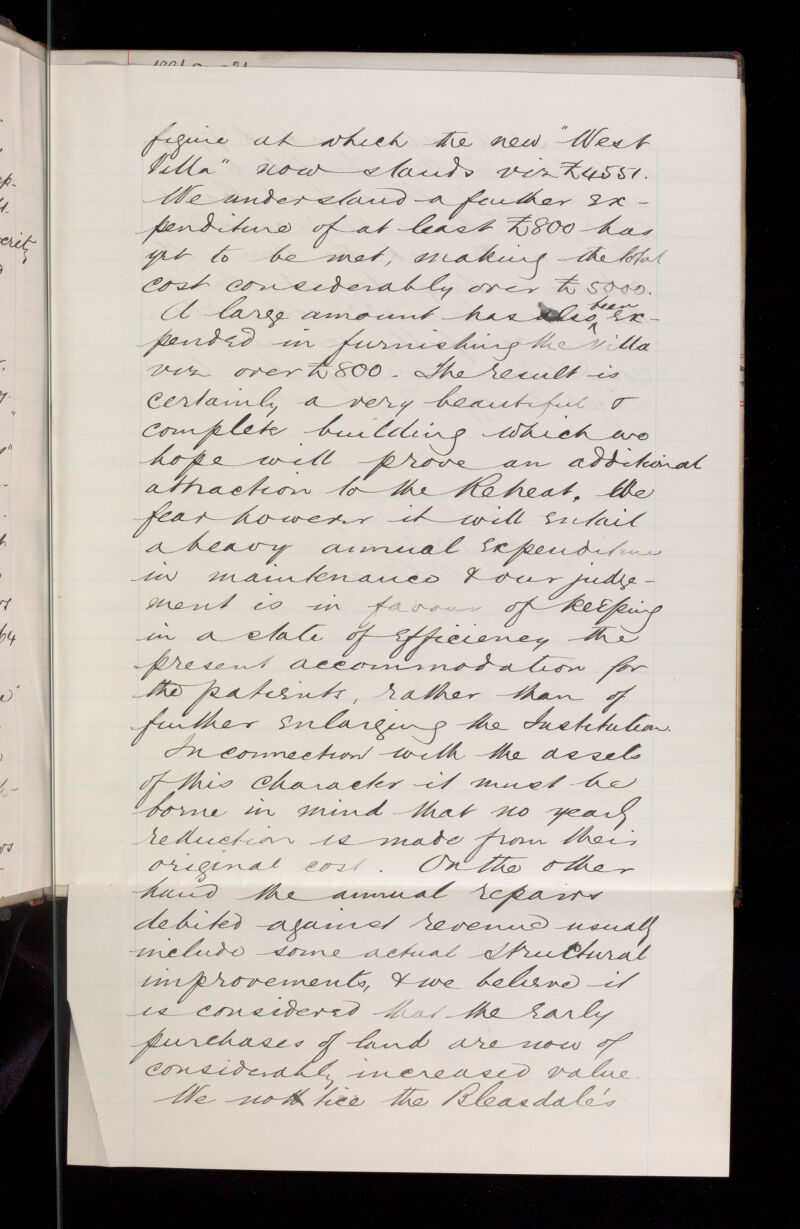 figure at which the new "West
Villa" now stands viz £4551.
We understand a further ex-
penditure of at least £800 has
yet to be met, making the total
cost considerably over £5000.
A large amount has also been ex-
pended in furnishing the Villa
viz over £800 - The result is
certainly a very beautiful &
complete building which we
hope will prove an additional
attraction to the Retreat. We
fear however it will entail
a heavy annual expenditure
in maintenance & our judge-
ment is in favour of keeping
in a state of efficiency the
present accommodation for
the patients, rather than of
further enlarging the Institution.
In connection with the assets
of this character it must be
borne in mind that no yearly
reduction is made from their
original cost. On the other
hand the annual repairs
debited against revenue usually
include some actual structural
improvements, & we believe it
is considered that the early
purchases of land are now of
considerably increased value.
We notice the Bleasdale's